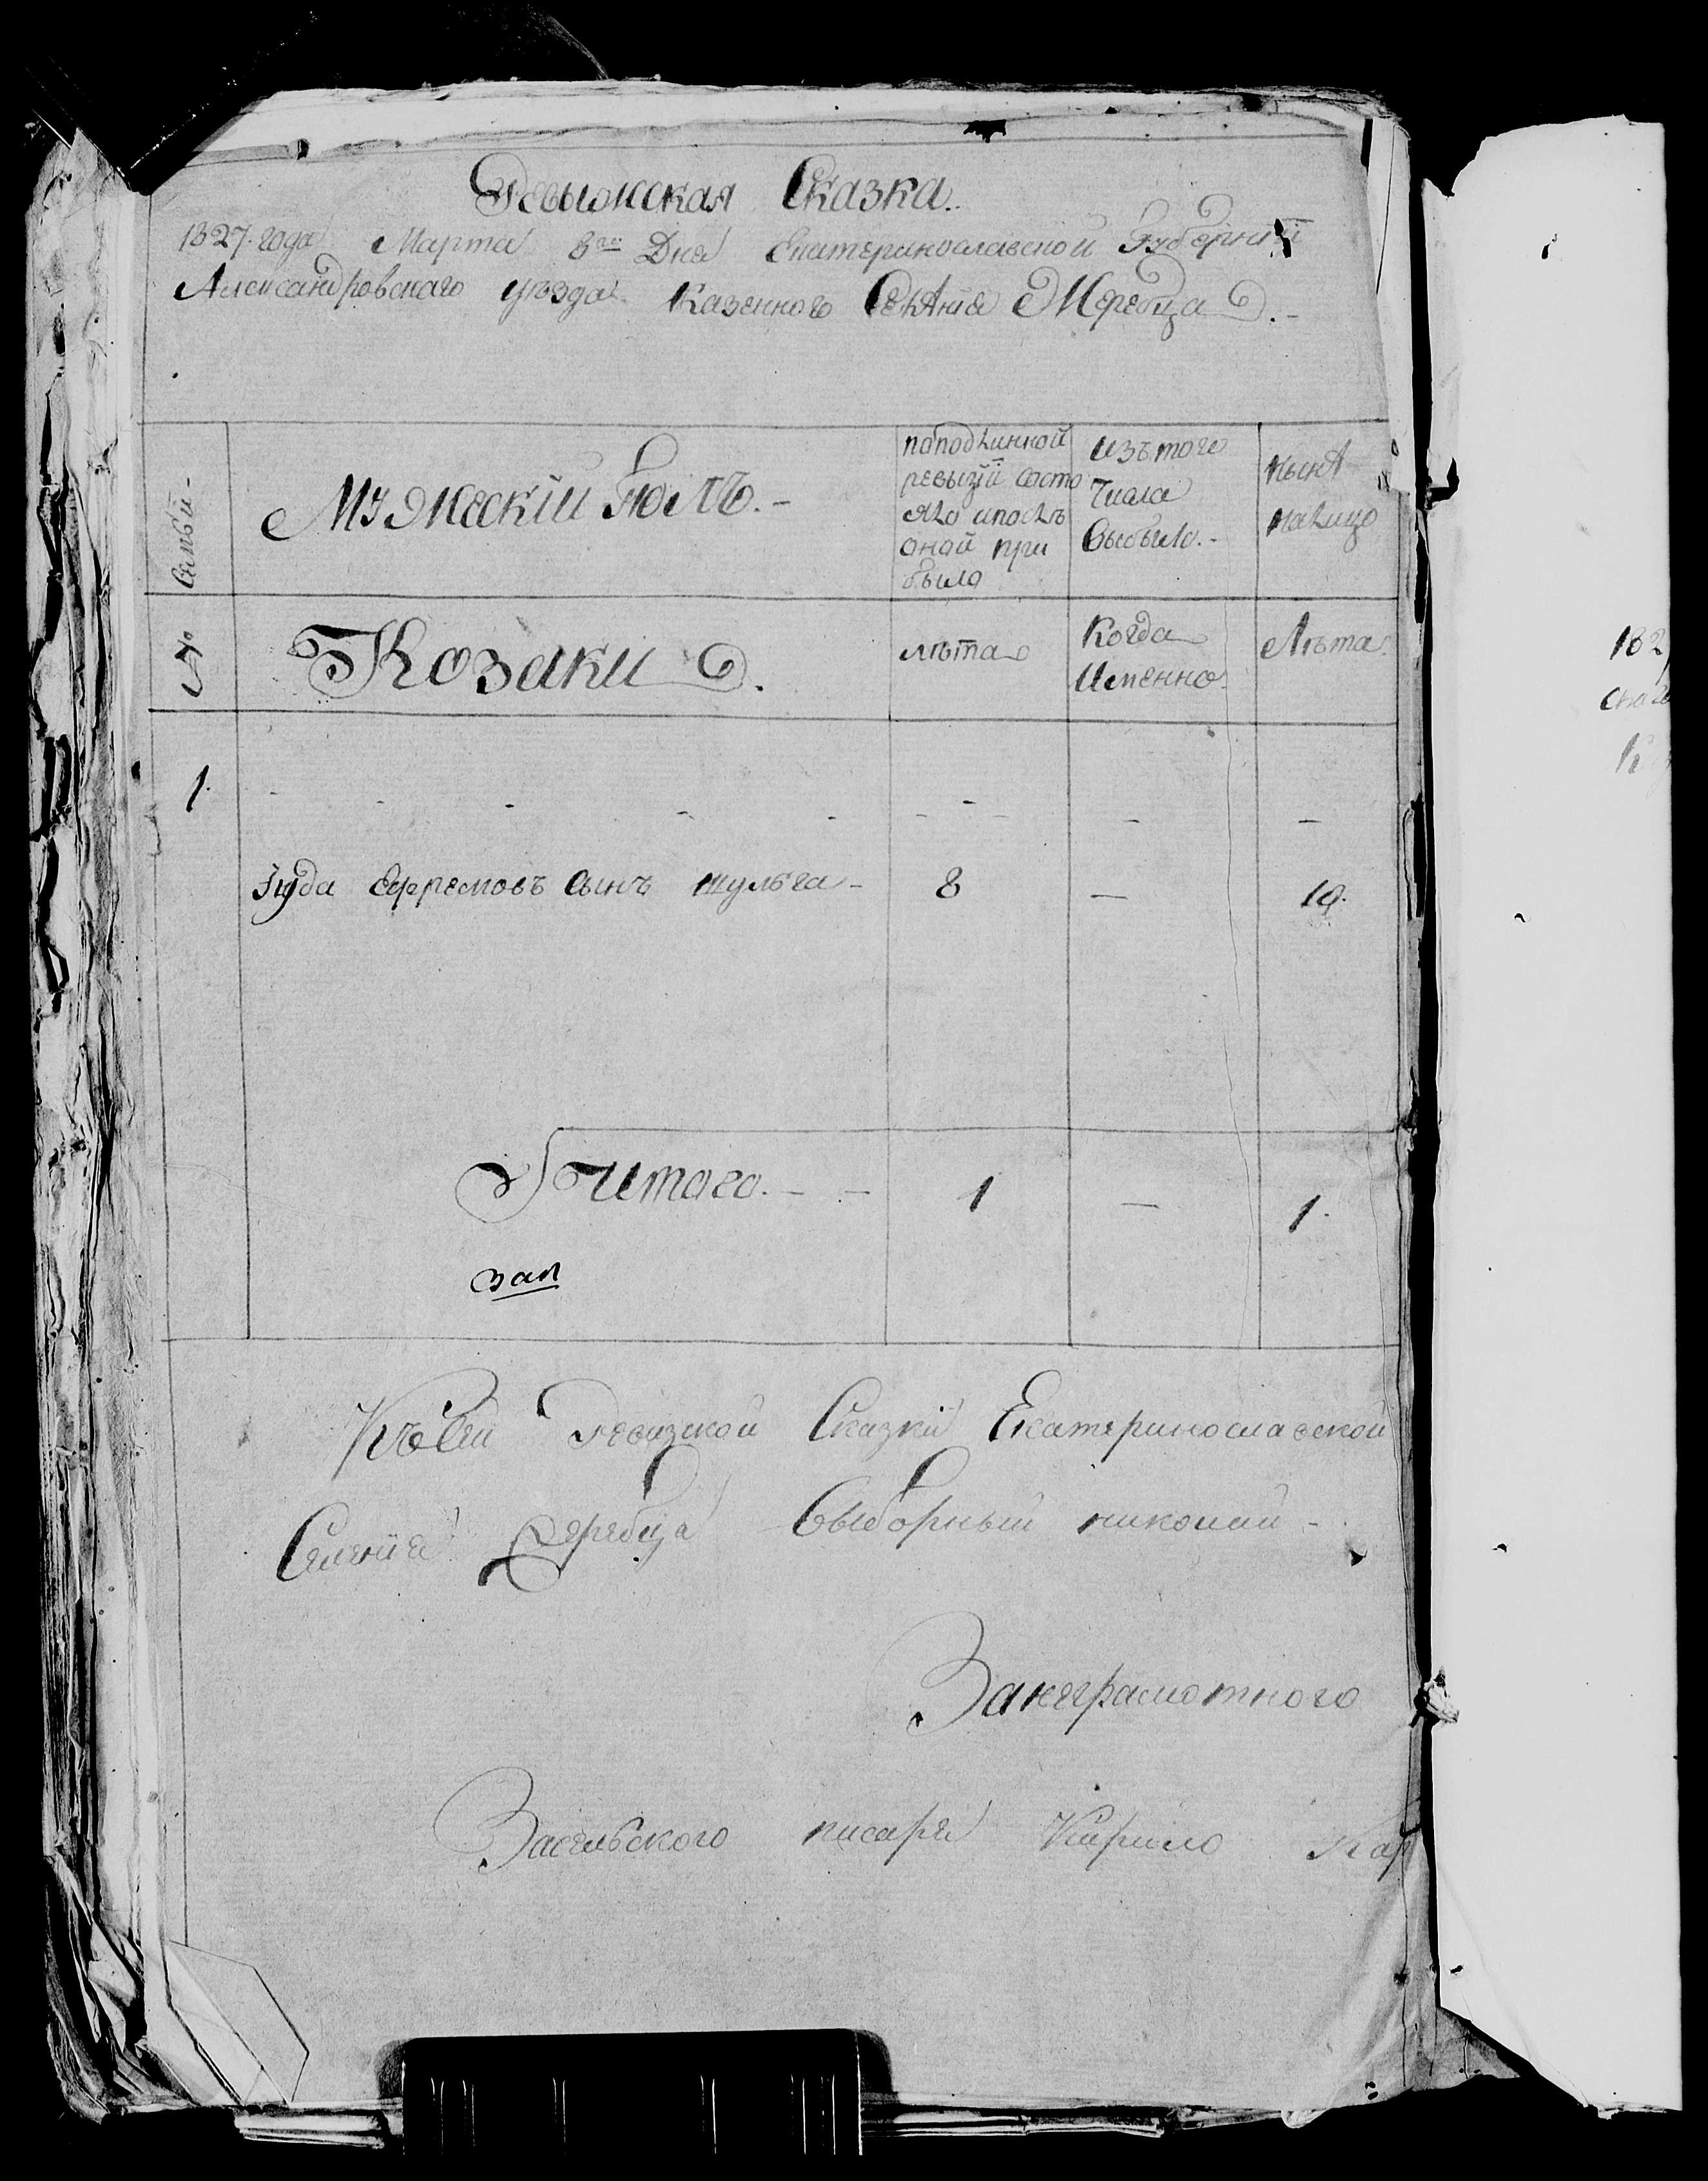 Ревыжская Сказка.
1827. года Марта 3го Дня Екатеринославской Губерниї
Александровскаго уѣзда Казенного Селѣния Жеребца.-
Семьи -
Мужескій Полъ. -
поподлинной
ревызіи состо
яло ипослѣ
оной при
было
изъ того
числа
выбыло. -
нынѣ
налицо
№
Козаки.
лѣта
Когда
Именно.
Лѣта.
1.
Іуда Ефремовъ сынъ шульга - 8 — 19.
Итого. - - 1 — 1.
Къ сей Ревизской Сказки Екатеринославской
Селения Жеребца Выборный николай -
Занеграмотного
Засельского писаря Кирило Кар
182